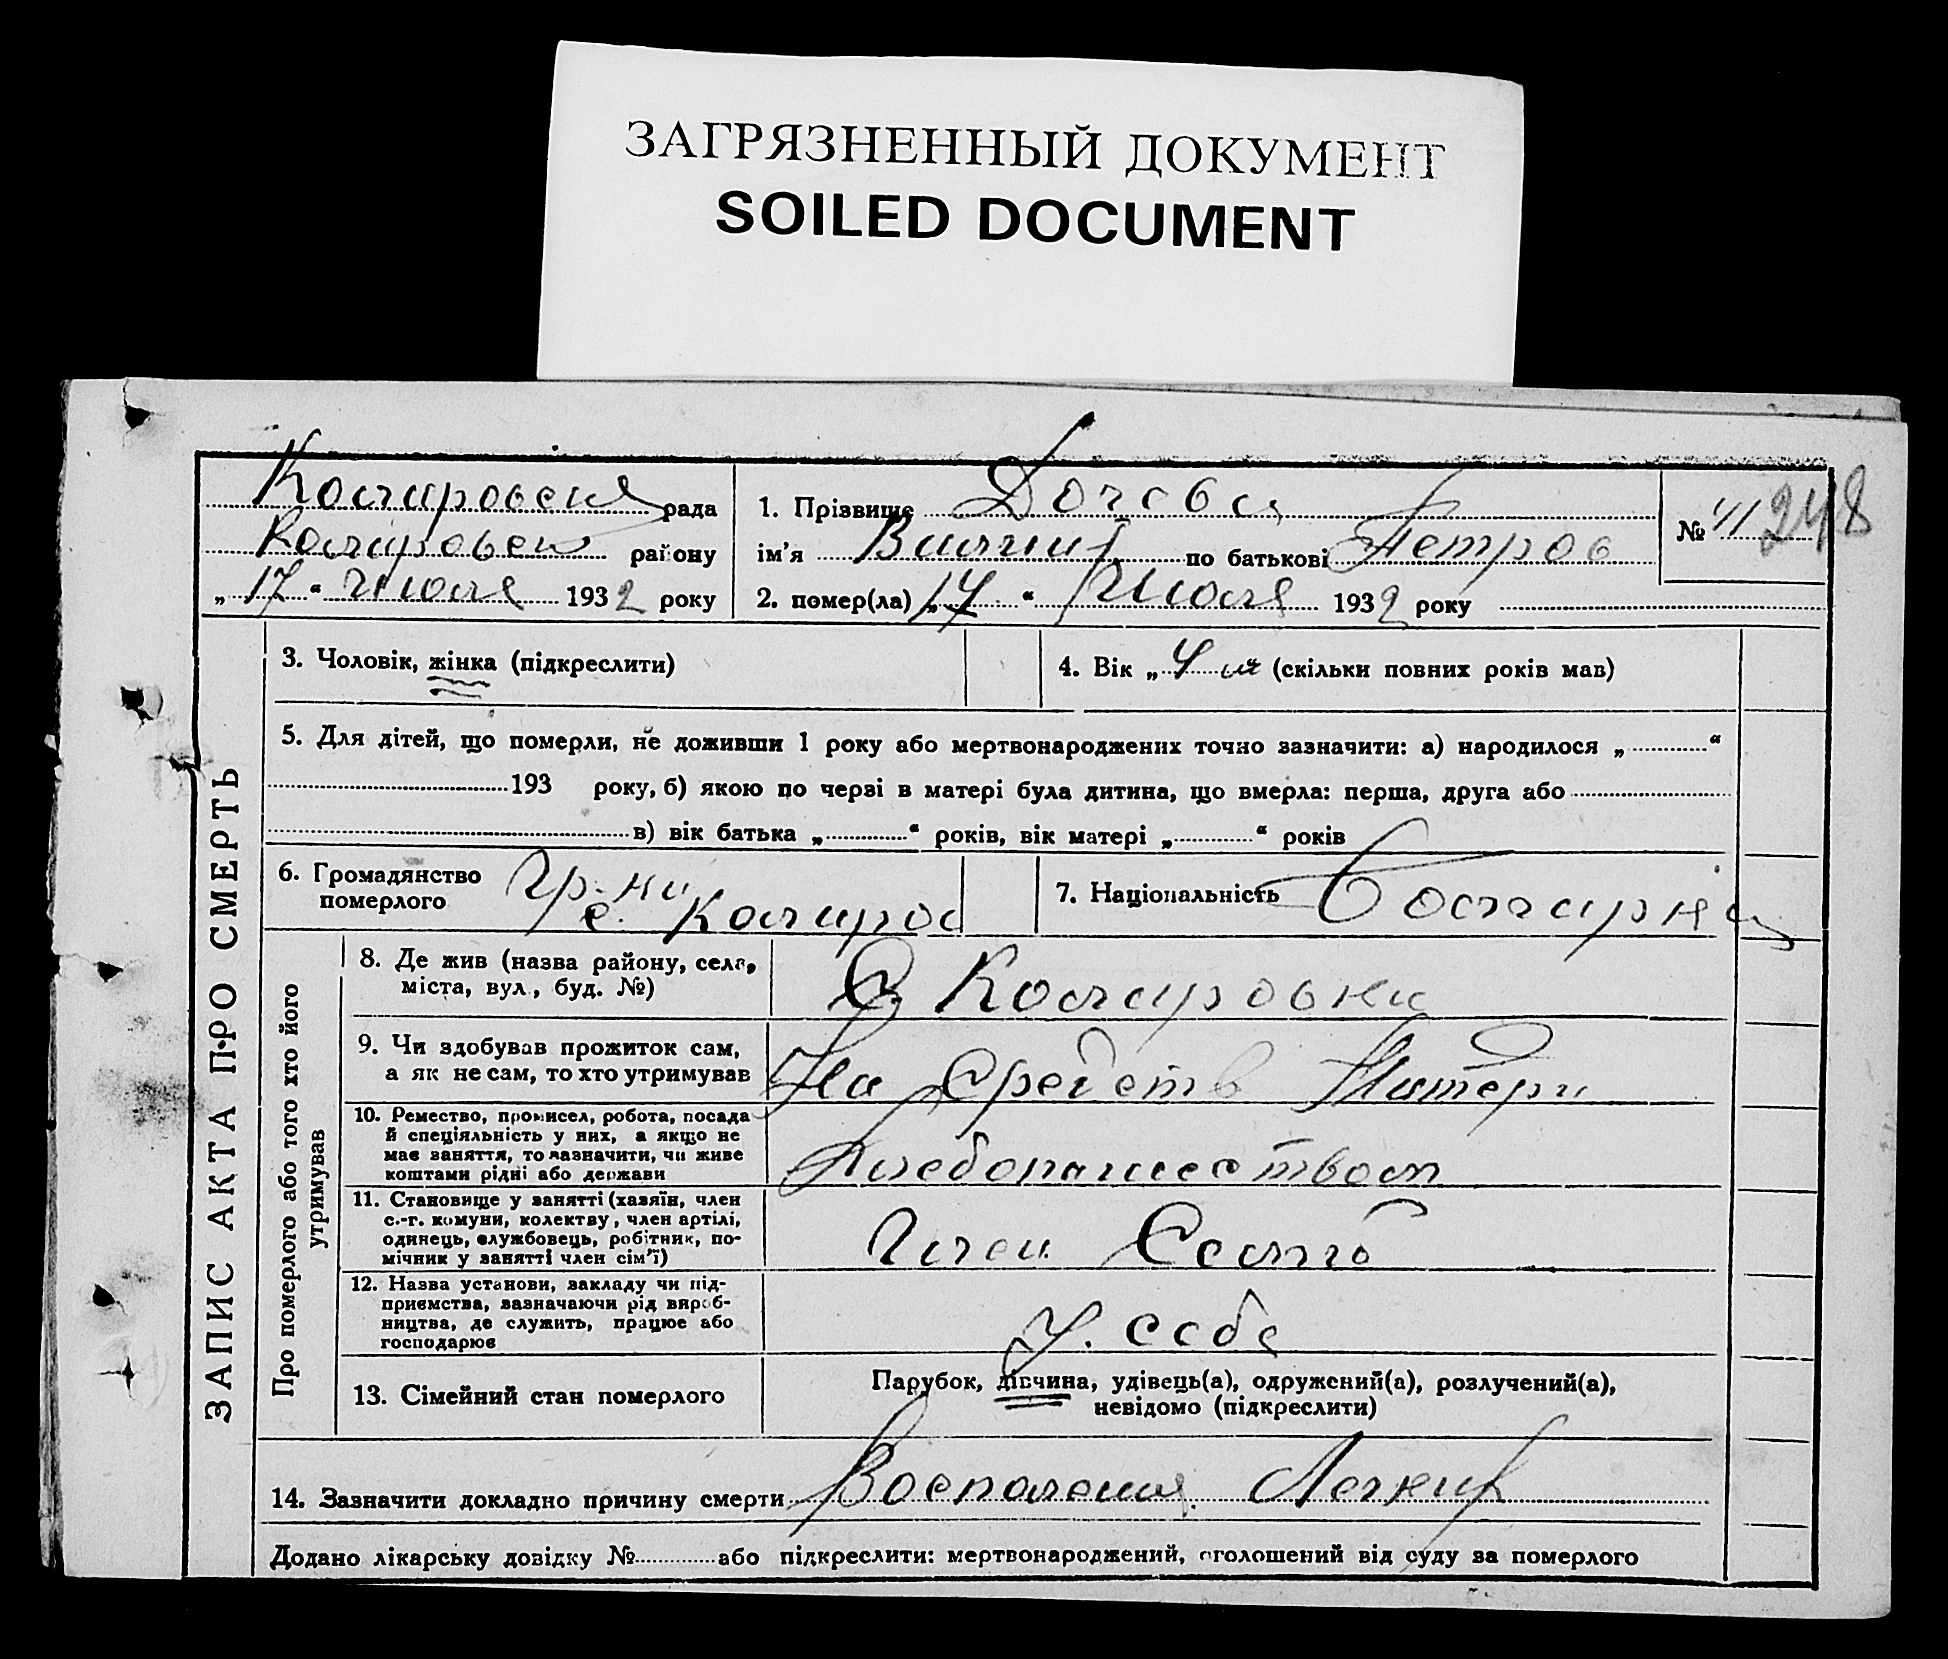 ЗАГРЯЗНЕННЫЙ ДОКУМЕНТ
SOILED DOCUMENT
рада
району
„17“ Июля 1932 року
1. Прізвище Дочева
ім'я по батькові Петров
2. помер(ла) „17“ Июля 1932 року
№ 41 248
ЗАПИС АКТА ПРО СМЕРТЬ
3. Чоловік, жінка (підкреслити)
4. Вік „4 (скільки повних років мав)
5. Для дітей, що померли, не доживши 1 року або мертвонароджених точно зазначити: а) народилося „ “
193 року, б) якою по черзі в матері була дитина, що вмерла: перша, друга або
в) вік батька „ “ років, вік матері „ “ років
6. Громадянство
померлого
Гр-ки
с.
7. Національність Болгарка
Про померлого або того хто його
утримував
8. Де жив (назва району, села,
міста, вул., буд. №)
С
9. Чи здобував прожиток сам,
а як не сам, то хто утримував
На Средств Матери
10. Ремество, промисел, робота, посада
й спеціяльність у них, а якщо не
має заняття, то зазначити, чи живе
коштами рідні або держави
Хлебопашеством
11. Становище у занятті (хазяїн, член
с.-г. комуни, колектву, член артілі,
одинець, службовець, робітник, по-
мічник у занятті член сім'ї)
Член
12. Назва установи, закладу чи під-
приємства, зазначаючи рід вироб-
ництва, де служить, працює або
господарює
У себе
13. Сімейний стан померлого
Парубок, дівчина, удівець(а), одружений(а), розлучений(а),
невідомо (підкреслити)
14. Зазначити докладно причину смерти Воспаления Легких
Додано лікарську довідку № або підкреслити: мертвонароджений, оголошений від суду за померлого